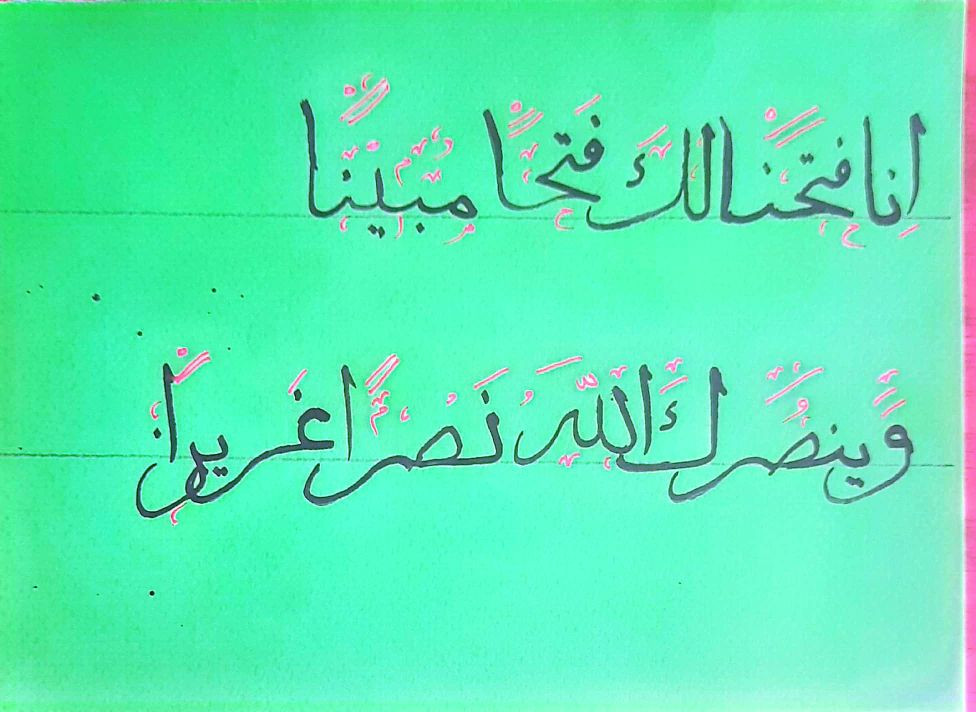 اِنا فتحنًا لكَ فَتحًا مُبينًا
وَّينصُرك اللّٰه نَصرًا غَريرًا